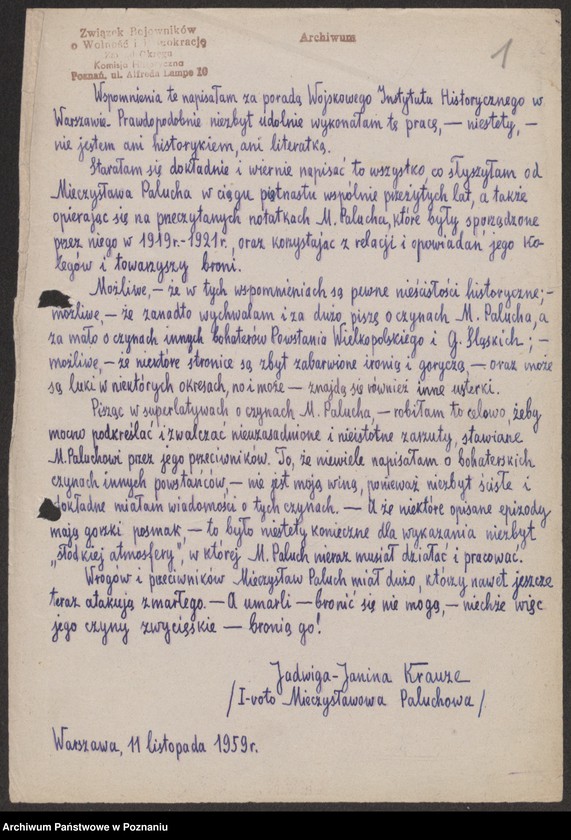 Związek Bojowników
o Wolność i Demokrację
Okręgu
Komisja Historyczna
Poznań, ul. Alfreda Lampe 10
Archiwum
1
Wspomnienia te napisałam za poradą Wojskowego Instytutu Historycznego w
Warszawie. Prawdopodobnie niezbyt udolnie wykonałam tę pracę, — niestety, —
nie jestem ani historykiem, ani literatką.
Starałam się dokładnie i wiernie napisać to wszystko, co słyszałam od
Mieczysława Palucha w ciągu piętnastu wspólnie przeżytych lat, a także
opierając się na przeczytanych notatkach M. Palucha, które były sporządzone
przez niego w 1919r.-1921r., oraz korzystając z relacji i opowiadań jego ko-
legów i towarzyszy broni.
Możliwe, — że w tych wspomnieniach są pewne nieścisłości historyczne; -
możliwe, — że zanadto wychwalam i za dużo piszę o czynach M. Palucha, a
za mało o czynach innych bohaterów Powstania Wielkopolskiego i G. Śląskich; —
możliwe, — że niektóre stronice są zbyt zabarwione ironią i goryczą, — oraz może
są luki w niektórych okresach, no i może — znajdą się również inne usterki.
Pisząc w superlatywach o czynach M. Palucha, — robiłam to celowo, żeby
mocno podkreślać i zwalczać nieuzasadnione i nieistotne zarzuty, stawiane
M. Paluchowi przez jego przeciwników. To, że niewiele napisałam o bohaterskich
czynach innych powstańców, — nie jest moją winą, ponieważ niezbyt ścisłe i
dokładne miałam wiadomości o tych czynach. — A że niektóre opisane epizody
mają gorzki posmak, — to było niestety konieczne dla wykazania niezbyt
„słodkiej atmosfery", w której M. Paluch nieraz musiał działać i pracować.
Wrogów i przeciwników Mieczysław Paluch miał dużo, którzy nawet jeszcze
teraz atakują zmarłego. — A umarli — bronić się nie mogą, — niechże więc
jego czyny zwycięskie — bronią go!
Jadwiga-Janina Krauze
/I-voto Mieczysławowa Paluchowa/
Warszawa, 11 listopada 1959r.
Archiwum Państwowe w Poznaniu